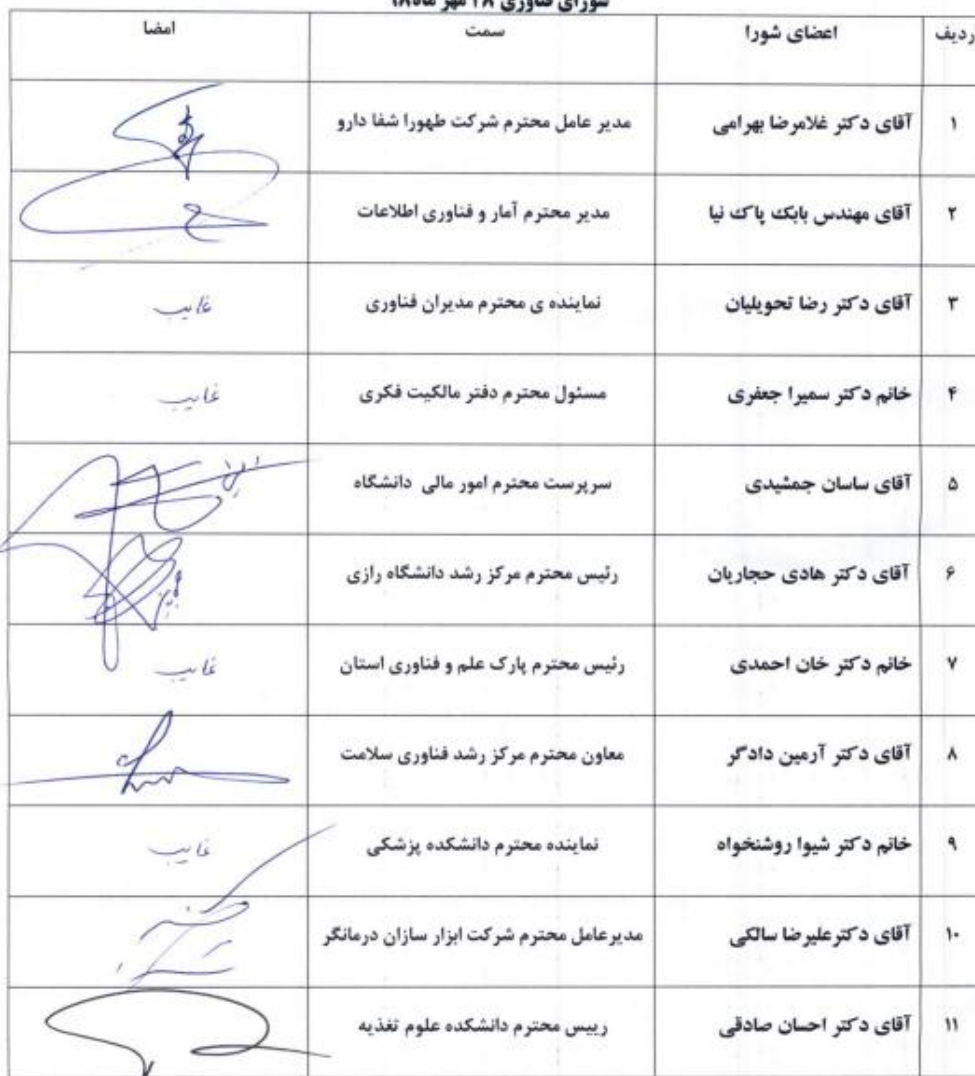 شورای فناوری ۲۸ مهر ماه۹۸
ردیف اعضای شورا سمت امضا
۱ آقای دکتر غلامرضا بهرامی مدیر عامل محترم شرکت طهورا شفا دارو
۲ آقای مهندس بابک پاک نیا مدیر محترم آمار و فناوری اطلاعات
۳ آقای دکتر رضا تحویلیان نماینده ی محترم مدیران فناوری غایب
۴ خانم دکتر سمیرا جعفری مسئول محترم دفتر مالکیت فکری غایب
۵ آقای ساسان جمشیدی سرپرست محترم امور مالی دانشگاه
۶ آقای دکتر هادی حجاریان رئیس محترم مرکز رشد دانشگاه رازی
۷ خانم دکتر خان احمدی رئیس محترم پارک علم و فناوری استان غایب
۸ آقای دکتر آرمین دادگر معاون محترم مرکز رشد فناوری سلامت
۹ خانم دکتر شیوا روشنخواه نماینده محترم دانشکده پزشکی غایب
۱۰ آقای دکترعلیرضا سالکی مدیرعامل محترم شرکت ابزار سازان درمانگر
۱۱ آقای دکتر احسان صادقی رییس محترم دانشکده علوم تغذیه